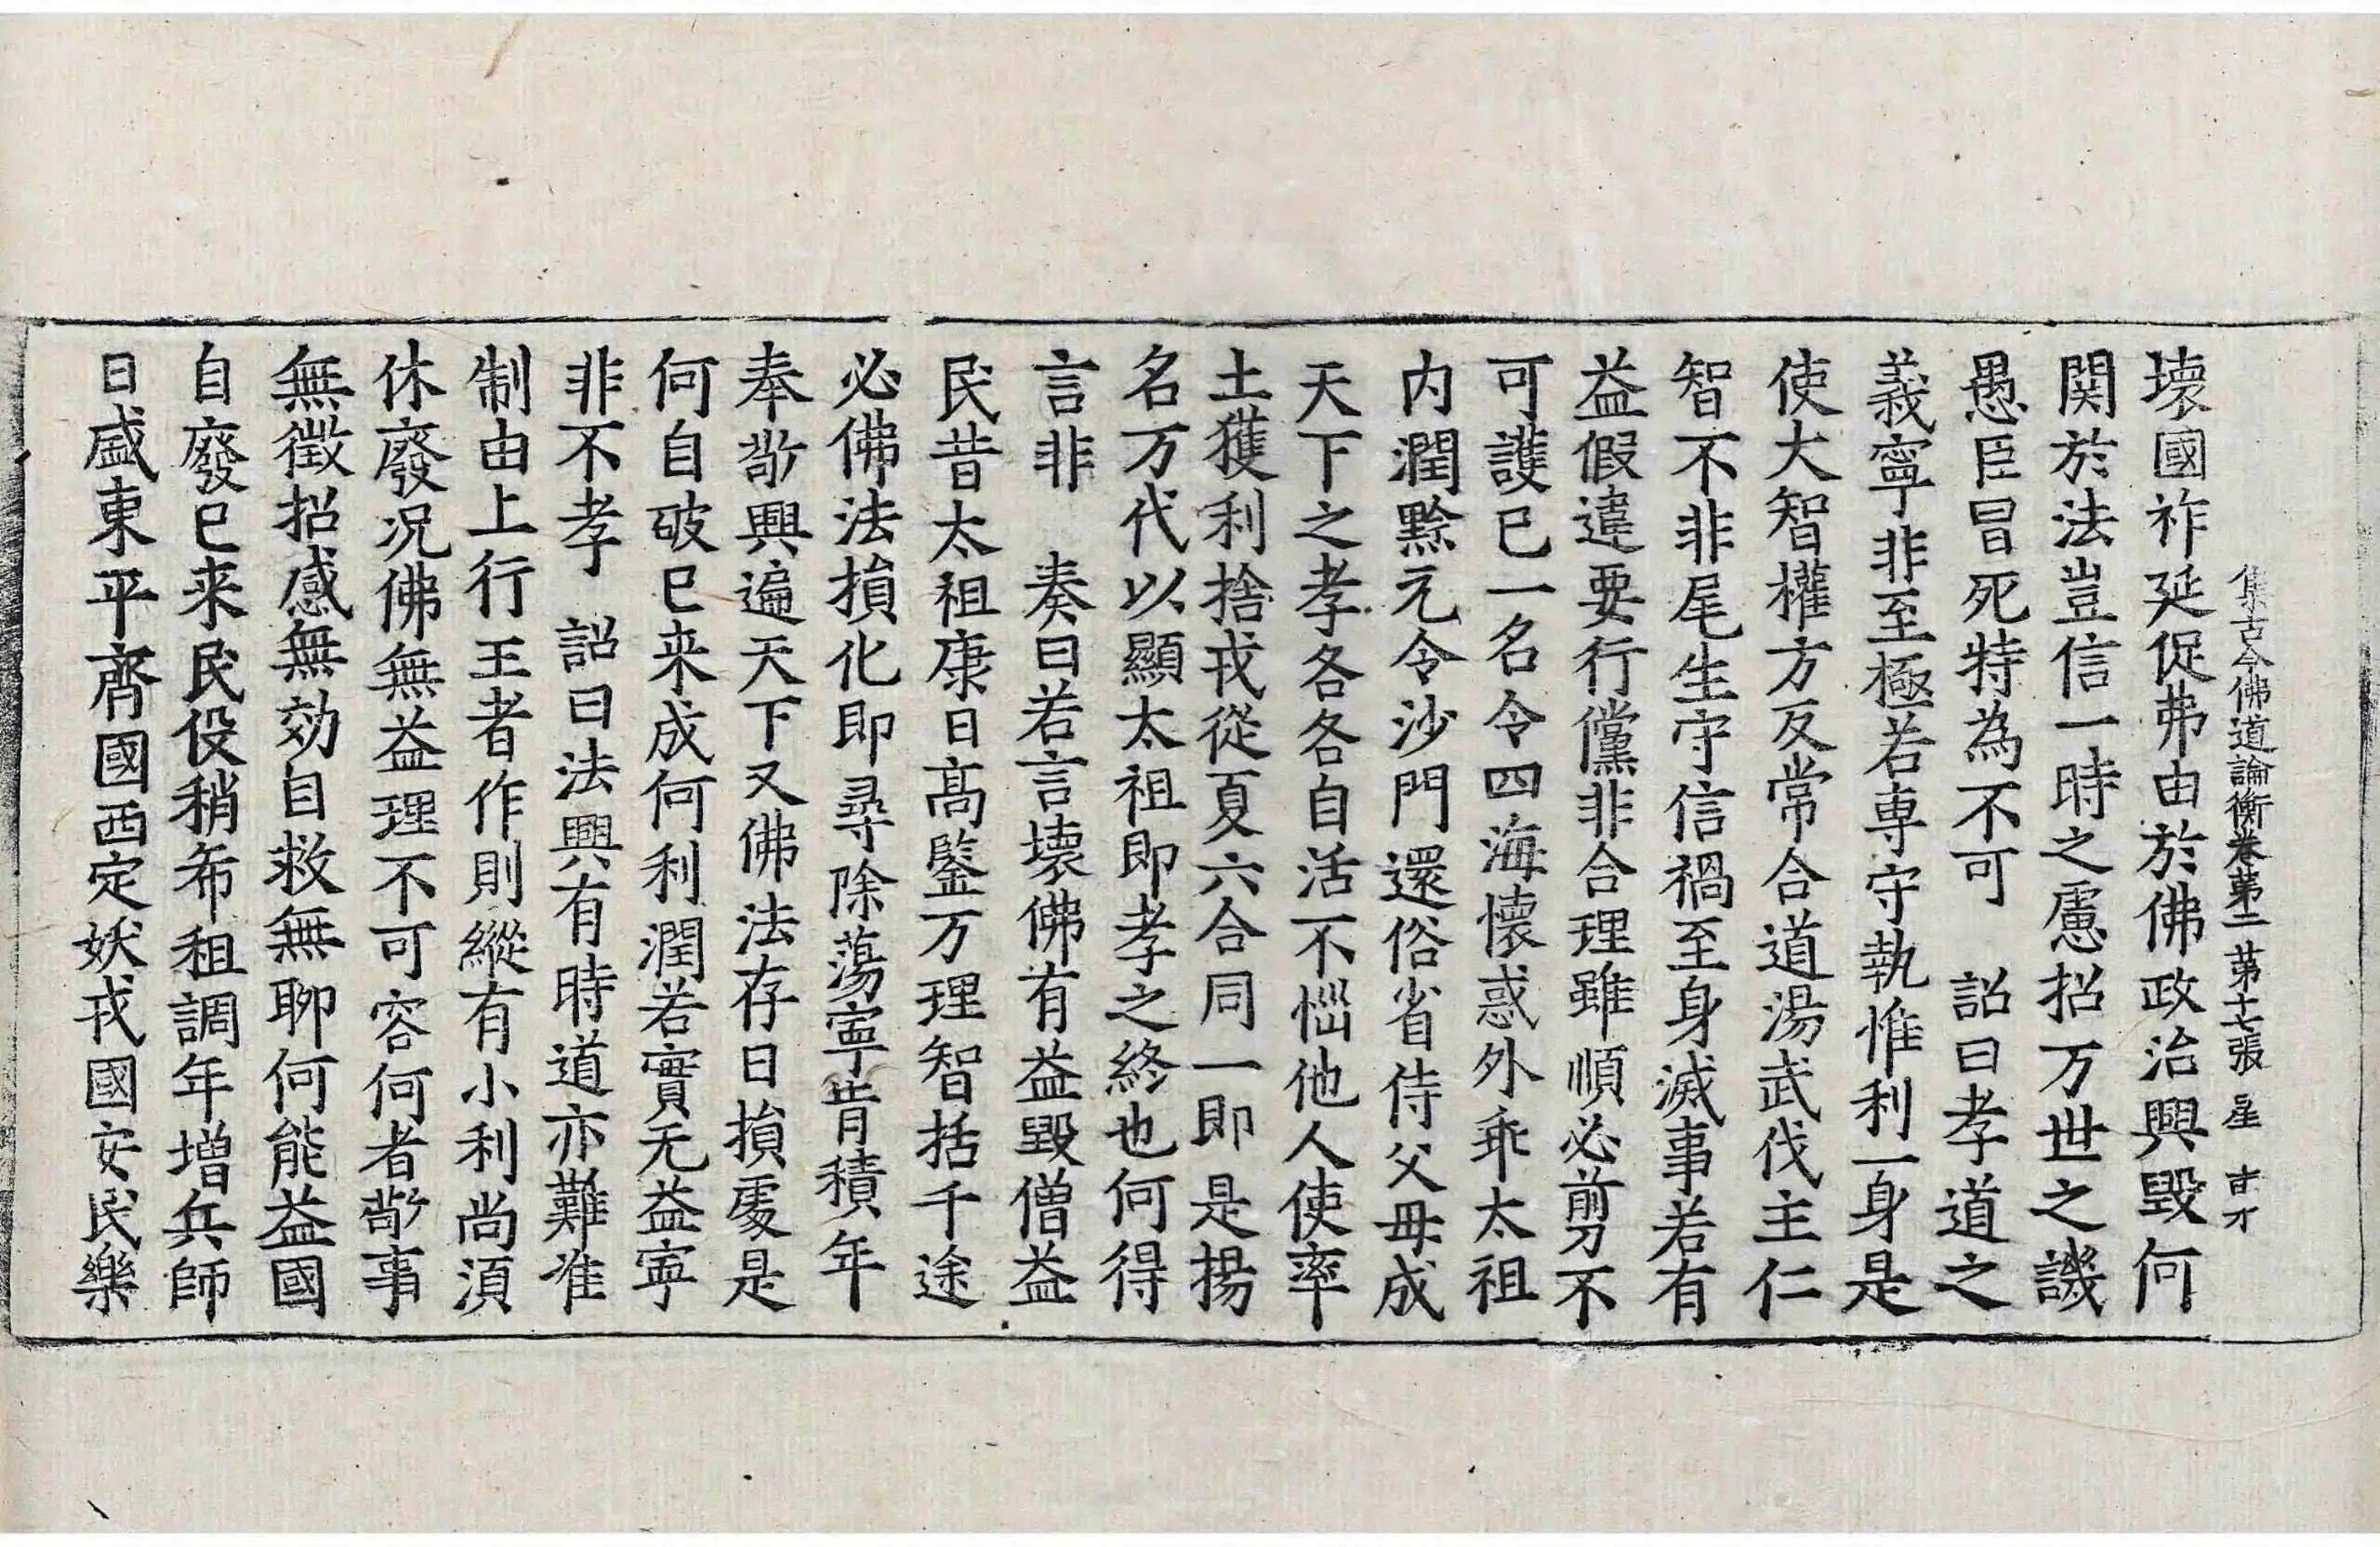 集古今佛道論衡卷第二　第十七張　星
壞國祚延促弗由於佛政治興毀何
関於法豈信一時之慮招万世之譏
愚臣冒死特為不可　詔曰孝道之
義寧非至極若専守執惟利一身是
使大智權方反常合道湯武伐主仁
智不非尾生守信禍至身滅事若有
益假違要行儻非合理雖順必剪不
可護已一名令四海懷惑外乖太祖
内潤黔元令沙門還俗省侍父母成
天下之孝各各自活不惱他人使率
土獲利捨戎從夏六合同一即是揚
名万代以顯太祖即孝之終也何得
言非　奏曰若言壞佛有益毀僧益
民昔太祖康日髙鍳万理智括千途
必佛法損化即尋除蕩寧肯積年
奉敬興遍天下又佛法存日損處是
何自破已来成何利潤若實无益寧
非不孝　詔曰法興有時道亦難准
制由上行王者作則縱有小利尚須
休廢况佛無益理不可容何者敬事
無徵招感無効自救無聊何能益國
自廢已来民役稍希租調年増兵師
日盛東平齊國西定妖戎國安民樂